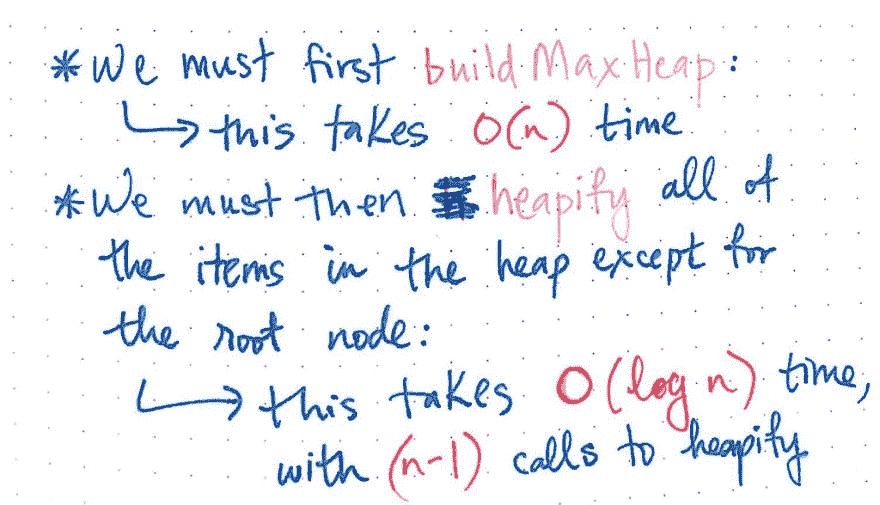 * We must first build Max Heap:
↳ this takes O(n) time
* We must then heapify all of
the items in the heap except for
the root node:
↳ this takes O(log n) time,
with (n-1) calls to heapify